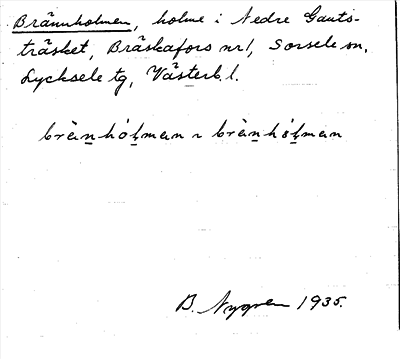 Brännholmen, holme i Nedre Gauts-
träsket, Bräskafors nr 1, Sorsele sn,
Lycksele tg, Västerb. l.
brän̲hól̲man ~ brän̲hól̲man
B. Nygren 1935.